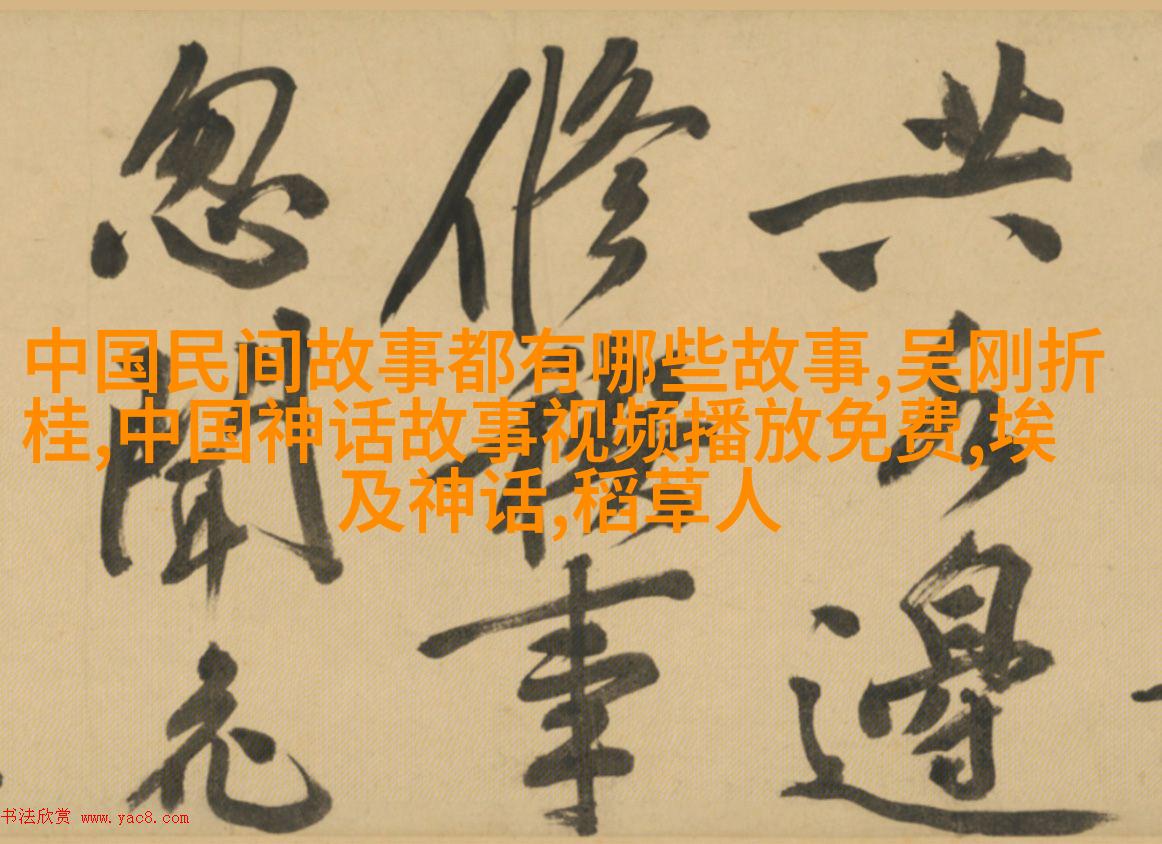 中国民间故事都有哪些故事,吴刚折
桂,中国神话故事视频播放免费,埃
及神话,稻草人
共邊
修事
忽聞元
书法欣赏 www.yac8.com